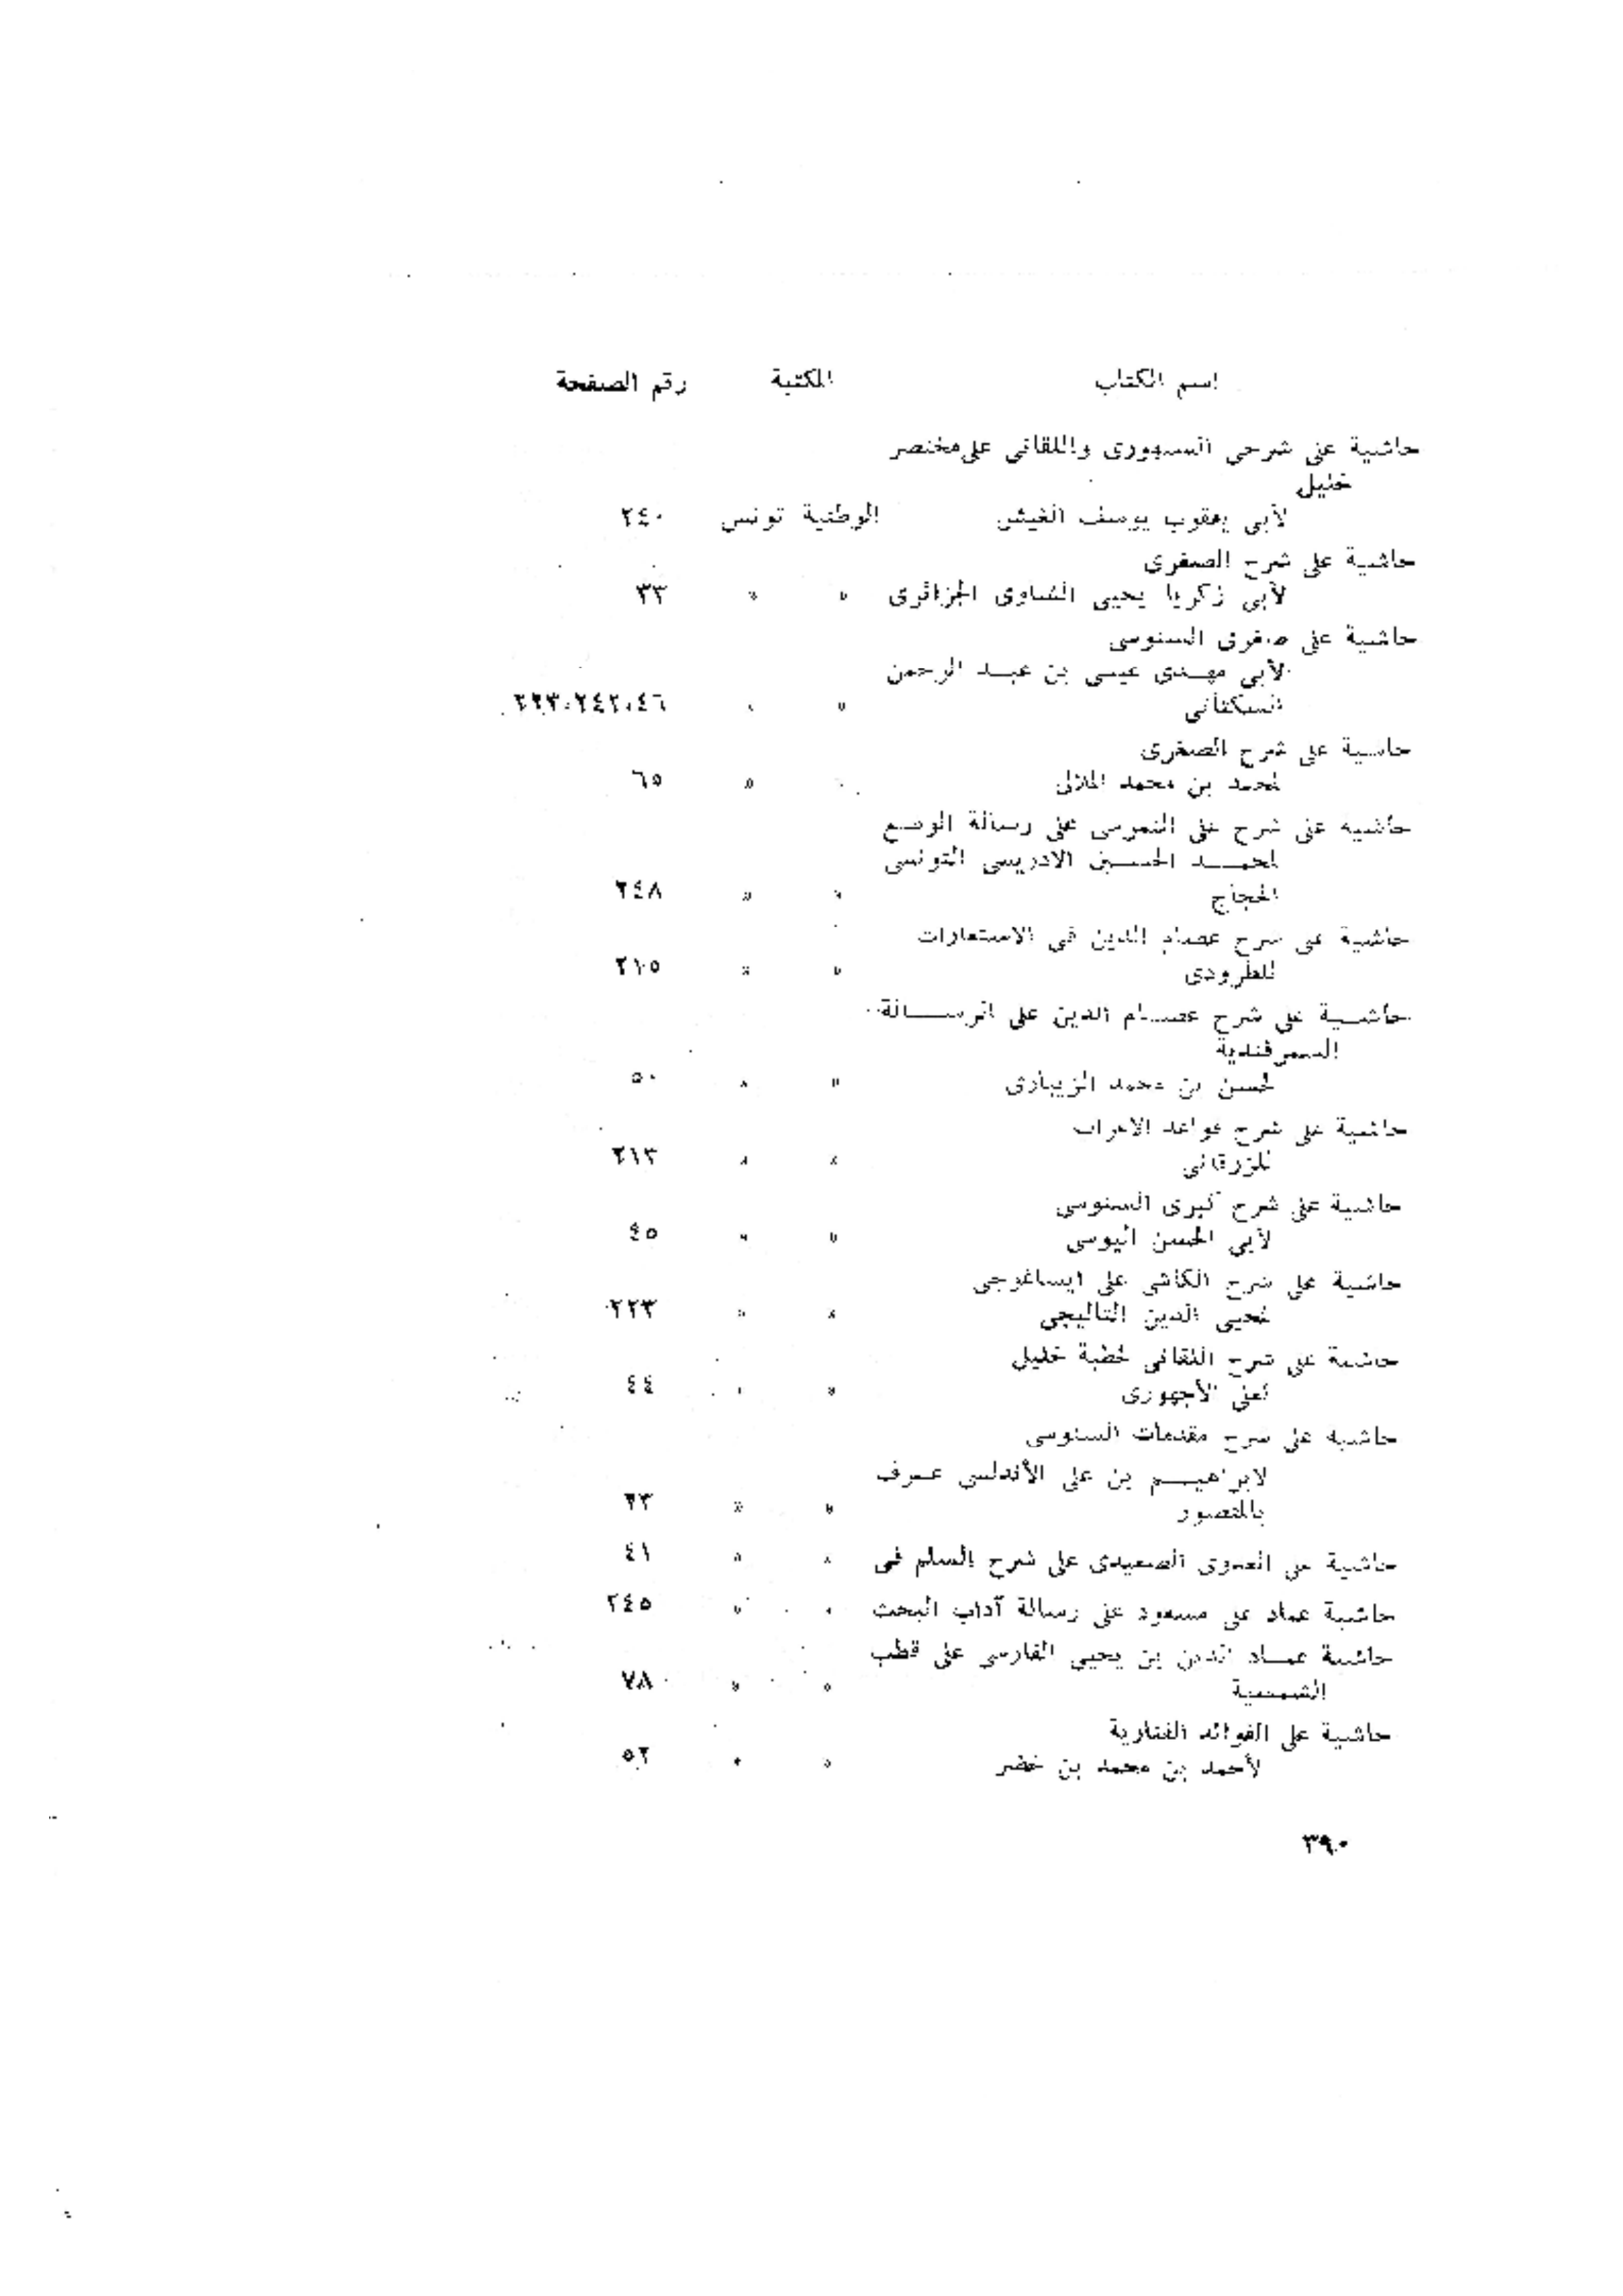 اسم الكتاب المكتبة رقم الصفحة
حاشية على شرحى السنهورى واللقانى على مختصر
خليل
لأبى يعقوب يوسف الفيشى الوطنية تونس ٢٤٠
حاشية على شرح الصغرى
لأبى زكريا يحيى الشاوى الجزائرى » » ٣٣
حاشية على صغرى السنوسى
لأبى مهدى عيسى بن عبد الرحمن
السكتانى » » ٢٤٢،٤٦
حاشية على شرح الصغرى
لمحمد بن محمد الملالى » » ٦٥
حاشية على شرح على رسالة الوضع
لمحمد الحسين الادريسى التونسى
» » ٢٤٨
حاشية على شرح عصام الدين فى الاستعارات
للطرودى » » ٢١٥
حاشية على شرح عصام الدين على الرسالة
السمرقندية
لحسن بن محمد الزيبارى » » ٥٠
حاشية على شرح قواعد الاعراب
للزرقانى » » ٢١٣
حاشية على شرح كبرى السنوسى
لأبى الحسن اليوسى » » ٤٥
حاشية على شرح الكاشى على ايساغوجى
لمحيى الدين التاليجى » » ٢٢٣
حاشية على شرح اللقانى لخطبة خليل
لعلى الأجهورى » » ٤٤
حاشية على شرح مقدمات السنوسى
لابراهيم بن على الأندلسى عرف
» »
حاشية على العدوى الصعيدى على شرح السلم فى » » ٤١
حاشية عماد على مسعود على رسالة آداب البحث » » ٢٤٥
حاشية عماد الدين بن يحيى الفارسى على قطب
الشمسية » » ٧٨
حاشية على الفوائد الفنارية
لأحمد بن محمد بن خضر » » ٥٢
٣٩٠